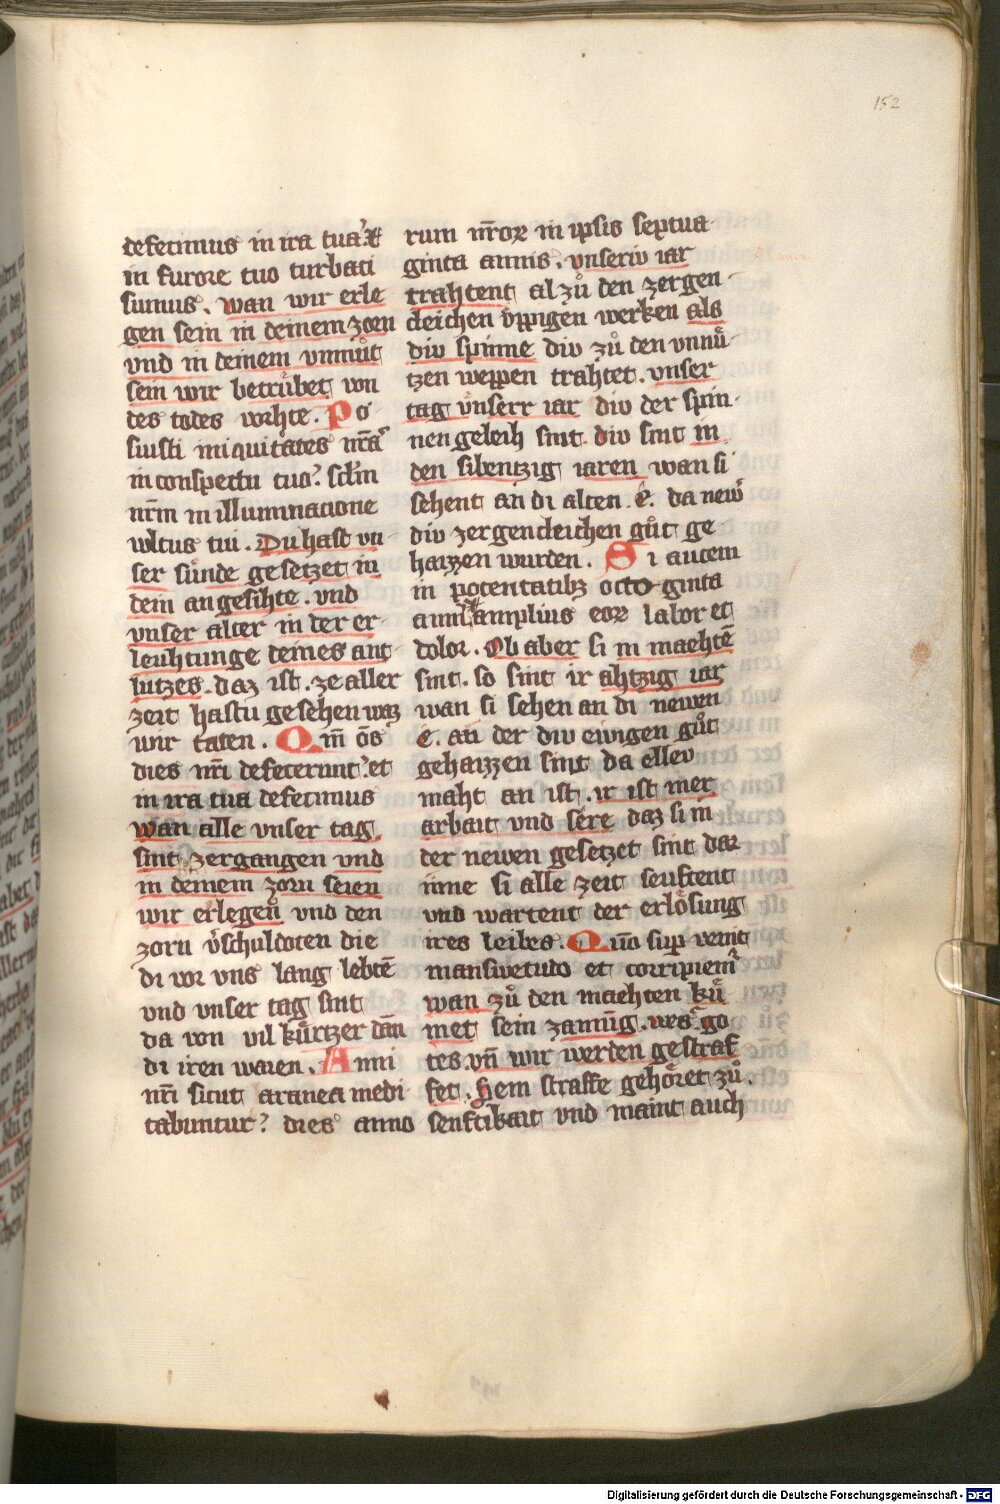 152
defecimus in ira tua. et
in furore tuo turbati
sumus. wan wir erle
gen sein in deinem zorn
vnd in deinem vnmuͦt
sein wir betruͤbet von
des todes vorhte. Po
suisti iniquitates nr̄as
in conspectu tuo? sclm̄
nr̄m in illuminatione
vultus tui. Du hast vn
ser suͤnde gesetzet in
dein angesihte. vnd
vnser alter in der er
leuhtunge deines ant
lutzes. daz ist. ze aller
zeit hastu gesehen waz
wir taten. Qm̄ om̄s
dies nr̄i defecerunt? et
in ira tua defecimus
wan alle vnser tag
sint zergangen vnd
in deinem zorn seien
wir erlegen vnd den
zorn v̓schuldoten die
di vor vns lang lebtē
vnd vnser tag sint
da von vil kuͤrtzer dan̄
di iren waren. Anni
nr̄i sicut aranea medi
tabuntur? dies anno
rum nr̄oꝝ in ipsis septua
ginta annis. vnseriv iar
trahtent al zuͦ den zergen
cleichen v̓ppigen werken als
div spinne div zuͦ den vnnuͤ
tzen weppen trahtet. vnser
tag vnserr iar div der spin
nen geleih sint. div sint in
den sibentzig iaren wan si
sehent an di alten .e. da new̓
div zergencleichen guͦt ge
haizzen wurden. Si autem
in potentatibꝫ octo ginta
anni amplius eoꝝ labor et
dolor. Ob aber si in maehtē
sint. so sint ir ahtzig iar
wan si sehen an di newen
e. an der div ewigen guͦt
gehaizzen sint da ellev
maht an ist. ir ist mer
arbait vnd sere daz si in
der newen gesetzet sint dar
inne si alle zeit seuftent
vnd wartent der erloͤsung
ires leibes. Qūo sup̄ venit
mansuetudo et corripiem̄
wan zuͦ den maehten kuͤ
met sein zamuͤg. ves. go
tes. vn̄ wir werden gestraf
fet. Hern straffe gehoͤret zuͦ.
senftikait vnd maint auch
Digitalisierung gefördert durch die Deutsche Forschungsgemeinschaft - DFG